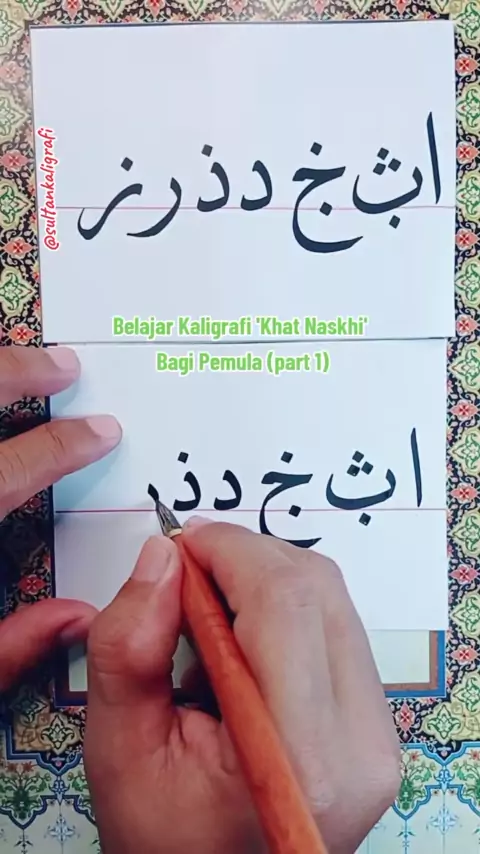 ا ث خ د ذ ر ز
@sultankaligrafi
Belajar Kaligrafi 'Khat Naskhi'
Bagi Pemula (part 1)
ا ث خ د ذ